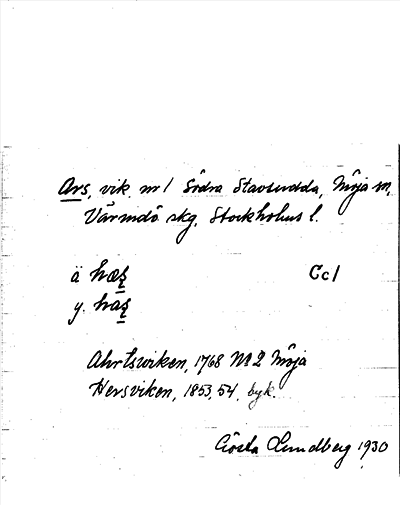 Ars, vik nr 1 Södra Stavsudda, Möja sn,
Värmdö skg, Stockholms l.
ä hæʂ Cc1
y. haʂ
Ahrtswiken, 1768 No 2 Möja
Hersviken, 1853, 54, byk.
Gösta Lundberg 1930